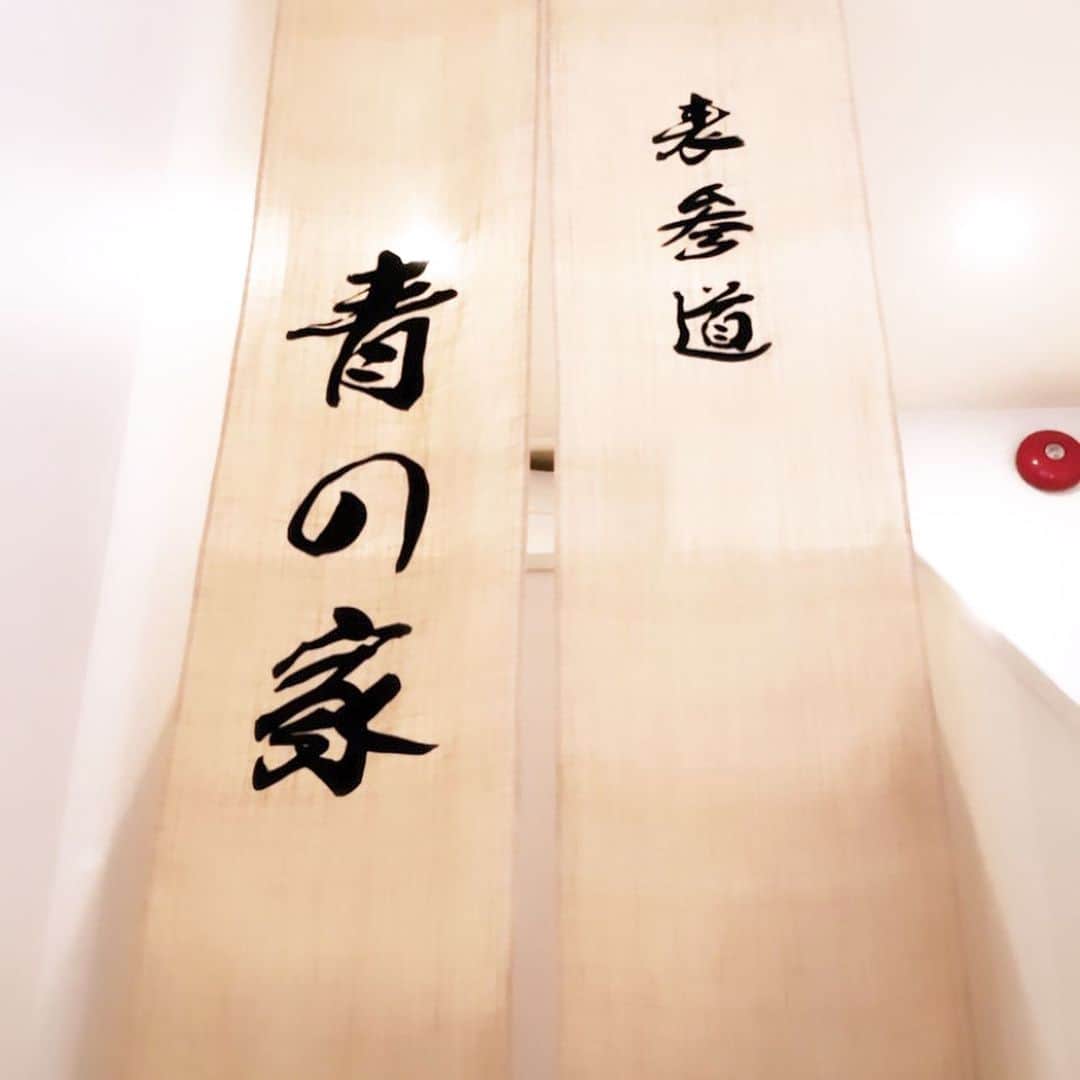 表参道
青の家